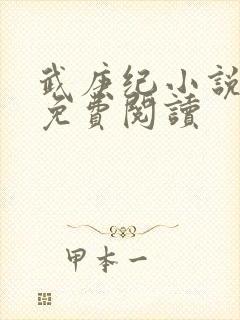 武庚纪小說
免費閱讀
甲本一